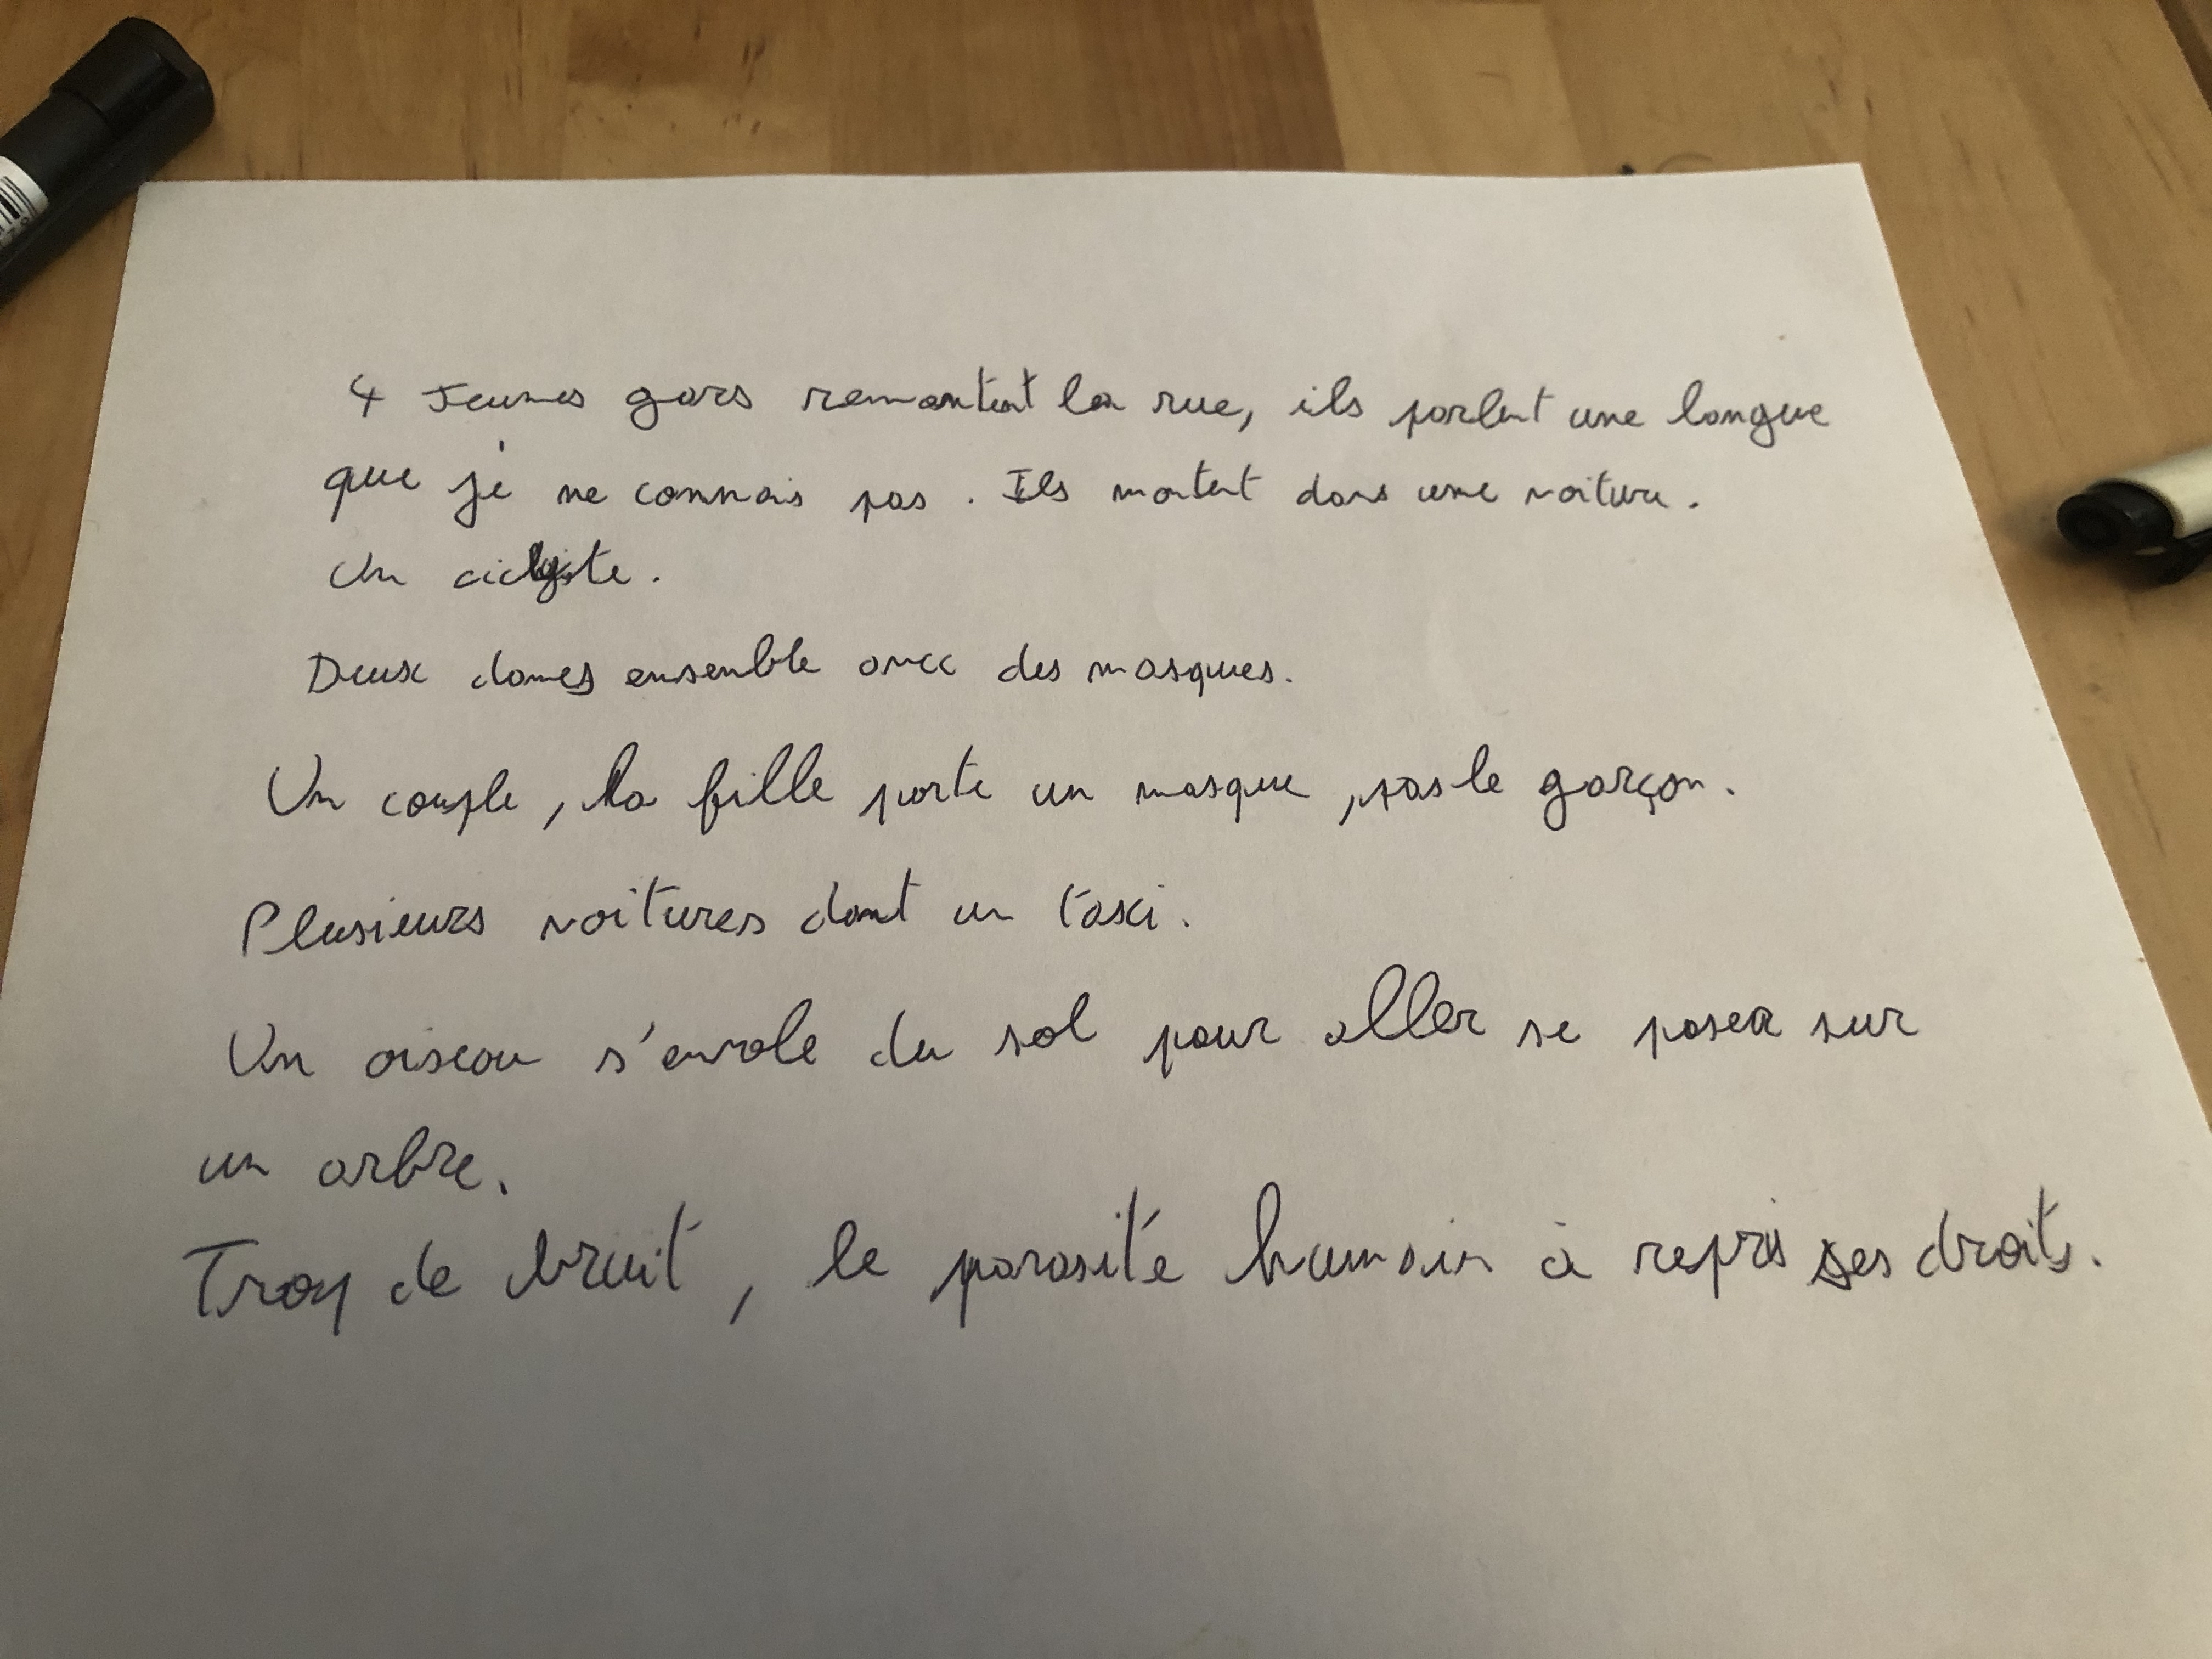 4 Jeunes gars remontent la rue, ils parlent une langue
que je ne connais pas. Ils montent dans une voiture.
Un
Deux dames ensemble avec des masques.
Un couple, la fille porte un masque, pas le garçon.
Plusieurs voitures dont un taxi.
Un oiseau s'envole du sol pour aller se poser sur
un arbre.
Trop de bruit, le parasite humain à repris ses droits.